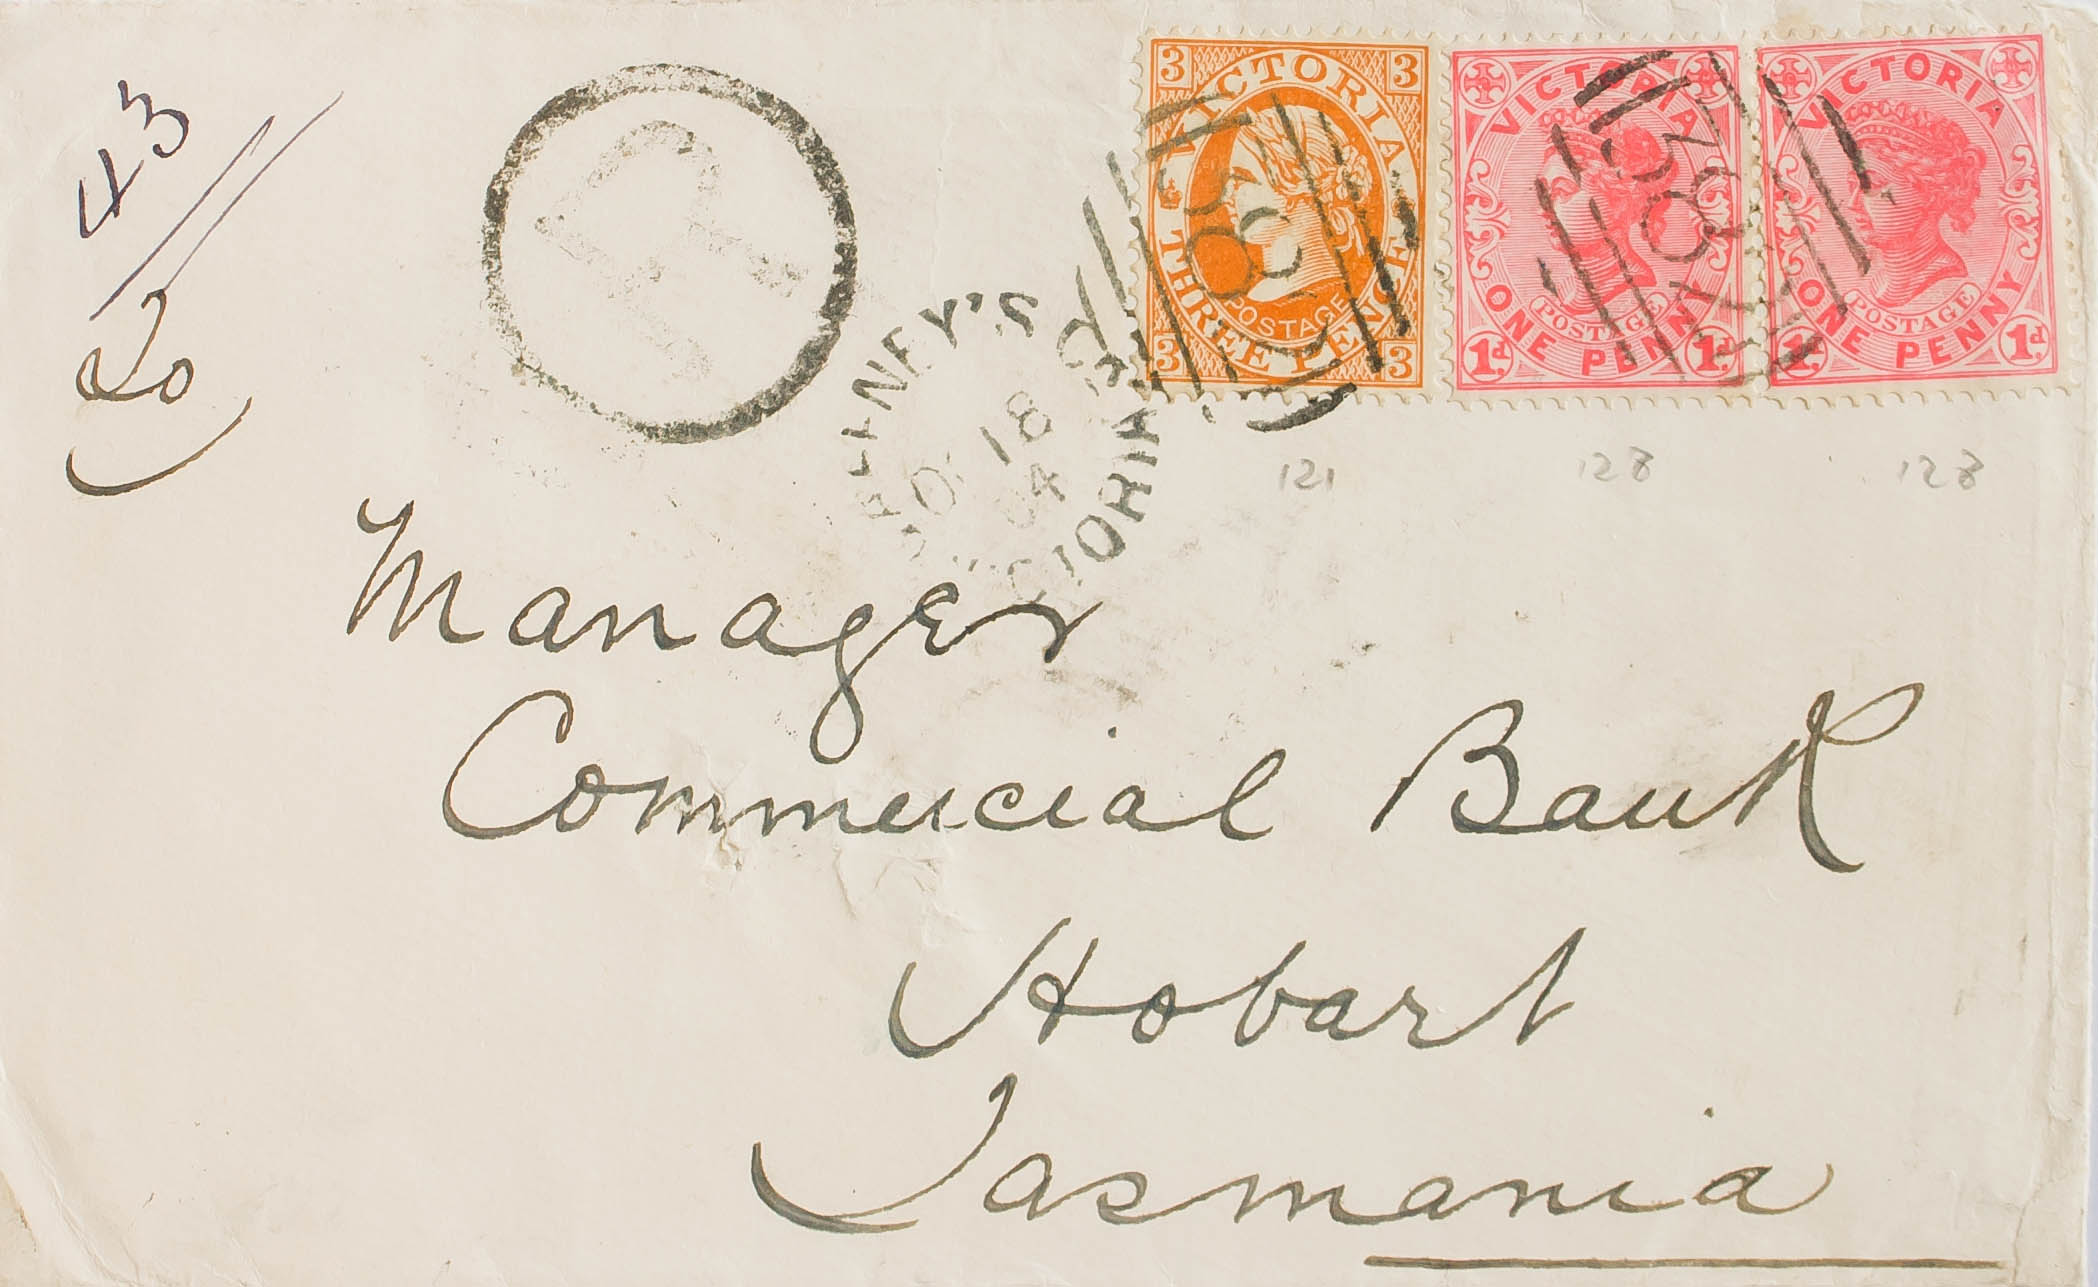 43
3 VICTORIA 3
POSTAGE
THREE PENCE
3 3
VICTORIA
POSTAGE
ONE PENNY
1d. 1d.
VICTORIA
POSTAGE
ONE PENNY
1d. 1d.
R
18
04
121 128 128
Manager
Commercial Bank
Hobart
Tasmania